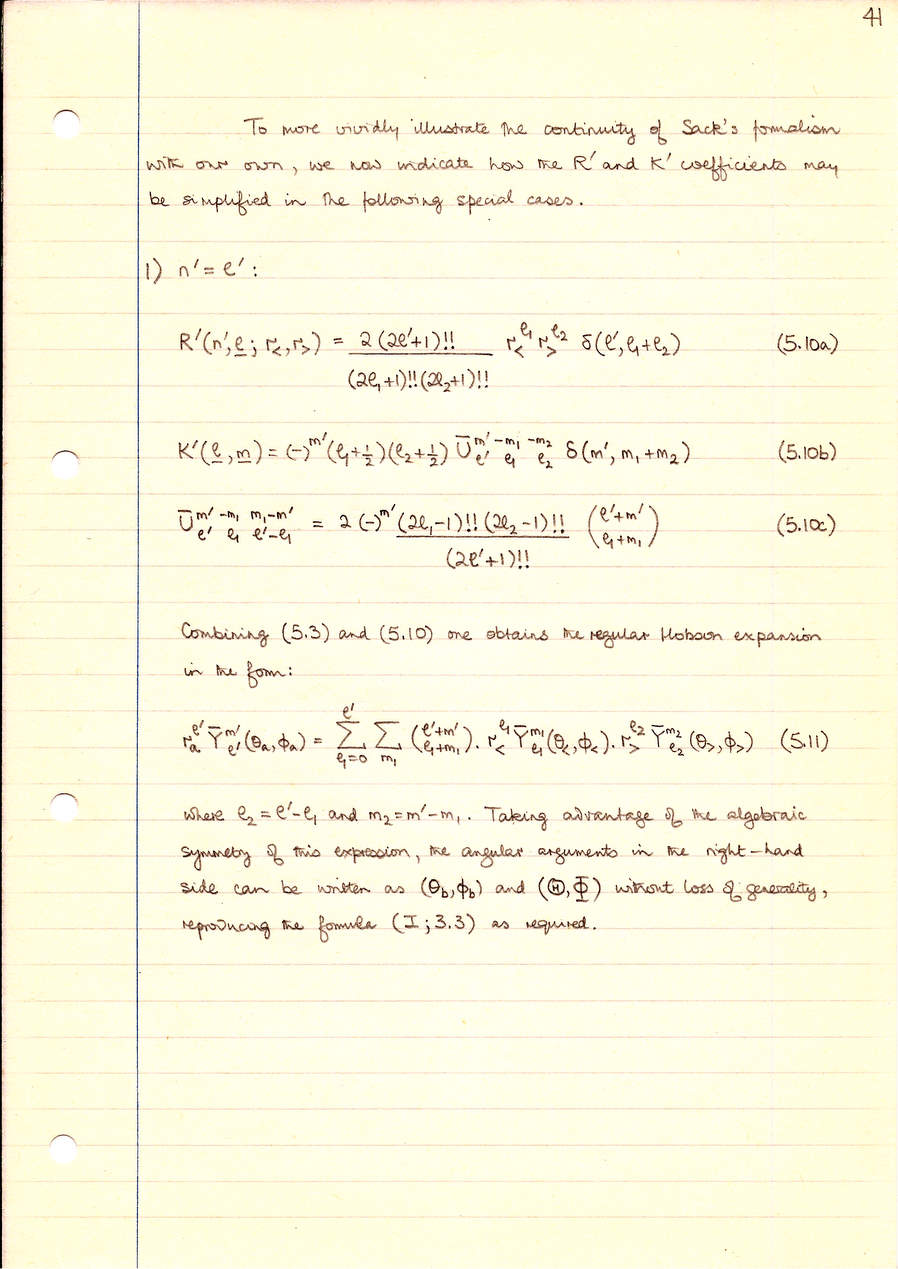 41
To more vividly illustrate the continuity of Sack's formalism
with our own, we now indicate how the R′ and K′ coefficients may
be simplified in the following special cases.
1) n′ = ℓ′ :
R′(n′, ℓ̲ ; r<, r>) = 2(2ℓ′+1)!! / (2ℓ₁+1)!!(2ℓ₂+1)!! r<^ℓ₁ r>^ℓ₂ δ(ℓ′, ℓ₁+ℓ₂) (5.10a)
K′(ℓ̲, m̲) = (−)^m′ (ℓ₁+½)(ℓ₂+½) Ū^{m′ −m₁ −m₂}_{ℓ′ ℓ₁ ℓ₂} δ(m′, m₁+m₂) (5.10b)
Ū^{m′ −m₁ m₁−m′}_{ℓ′ ℓ₁ ℓ′−ℓ₁} = 2(−)^m′ (2ℓ₁−1)!!(2ℓ₂−1)!! / (2ℓ′+1)!! (ℓ′+m′ / ℓ₁+m₁) (5.10c)
Combining (5.3) and (5.10) one obtains the regular Hobson expansion
in the form:
r_a^ℓ′ Ȳ^{m′}_{ℓ′}(θa, φa) = ∑_{ℓ₁=0}^{ℓ′} ∑_{m₁} (ℓ′+m′ / ℓ₁+m₁) . r<^ℓ₁ Ȳ^{m₁}_{ℓ₁}(θ<, φ<) . r>^ℓ₂ Ȳ^{m₂}_{ℓ₂}(θ>, φ>) (5.11)
where ℓ₂ = ℓ′−ℓ₁ and m₂ = m′−m₁. Taking advantage of the algebraic
symmetry of this expression, the angular arguments in the right-hand
side can be written as (θb, φb) and (Θ, Φ) without loss of generality,
reproducing the formula (I ; 3.3) as required.